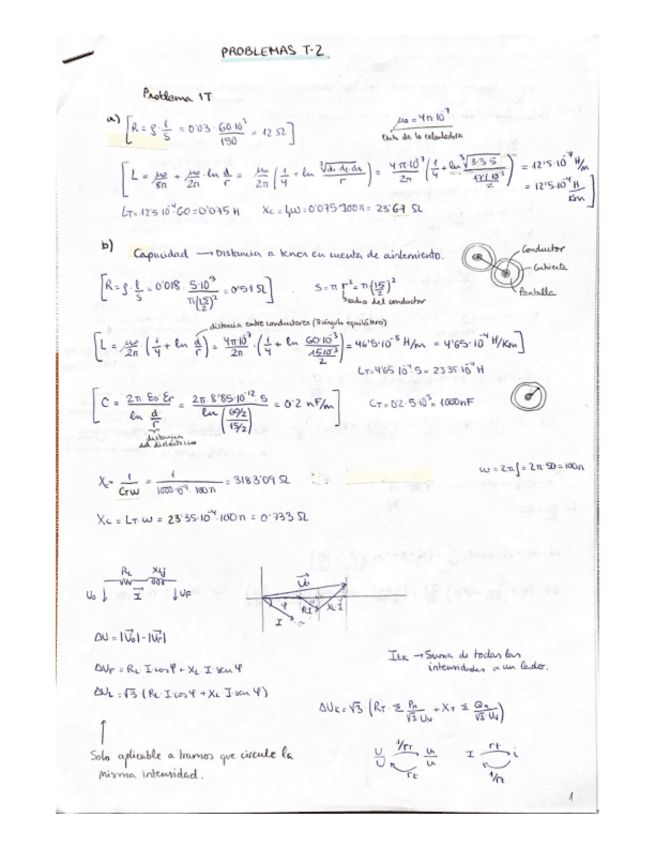 PROBLEMAS T-2
Problema 1T
a) [R = ρ · l/S = 0'03 · 60·10³/150 = 12 Ω]
μ₀ = 4π10⁻⁷
Dato de la calculadora
= 12'5·10⁻⁷ H/m
= 12'5·10⁻⁴ H/Km]
L_T = 12'5·10⁻⁴ 60 = 0'075 H X_L = L·ω = 0'075·100π = 23'67 Ω
b) Capacidad → Distancia a tener en cuenta de aislamiento.
Conductor
Cubierta
Pantalla
[R = ρ · l/S = 0'018 · 5·10³/π(15/2)² = 0'51 Ω] . S = π r² = π(15/2)²
radio del conductor
distancia entre conductores (Triángulo equilátero)
[L = μ₀/2π · (1/4 + ln d/r) = 4π10⁻⁷/2π · (1/4 + ln 60·10⁻³/(15·10⁻³/2)) = 46'5·10⁻⁸ H/m = 4'65·10⁻⁴ H/Km]
L_T = 4'65 10⁻⁴ 5 = 23'35 10⁻⁴ H
[C = 2π ε₀ εr / ln d/r = 2π·8'85·10⁻¹²·5 / ln((69/2)/(15/2)) = 0'2 nF/m] C_T = 0'2·5·10³ = 1000nF
distancia
del dieléctrico
X_c = 1/C_Tω = 1/(1000·10⁻⁹·100π) = 3183'09 Ω
ω = 2πf = 2π 50 = 100π
X_L = L_T·ω = 23'35·10⁻⁴·100π = 0'733 Ω
R_L X_Lj
U₀ I U_F
U₀
φ
I RI X_L·I
ΔU = |U₀| - |U_F|
ΔU_F = R_L I cos φ + X_L I sen φ
I_LK → Suma de todas las
intensidades a un lado.
ΔU_L = √3 (R_L·I cos φ + X_L I sen φ)
ΔU_K = √3 (R_T Σ P_n/√3 U_N + X_T Σ Q_n/√3 U_N)
Solo aplicable a tramos que circule la
misma intensidad.
U 1/rt u
U rt u
I rt i
1/rt
1